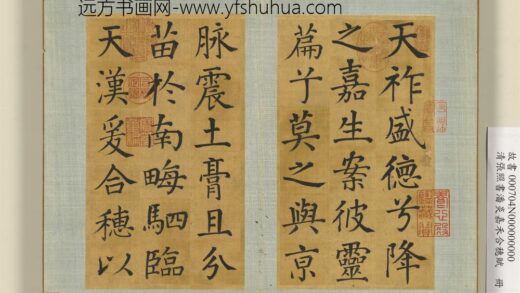 远方书画网-www.yfshuhua.com
天祚盛德兮降
之嘉生案彼靈
篇兮莫之與亰
脉震土膏且分
苗於南畮駟臨
天漢爰合穗以
故書 000704N000000000
清張照書潘炎嘉禾合穗賦 冊